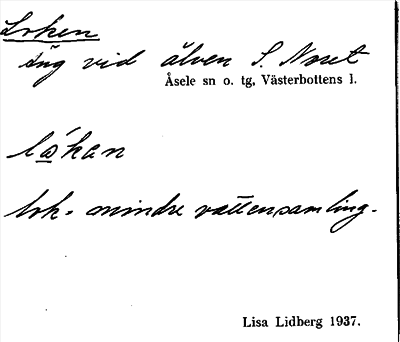 Loken
äng vid älven S. Noret
Åsele sn o. tg, Västerbottens l.
lo̱´kan
lok = mindre vattensamling.
Lisa Lidberg 1937.